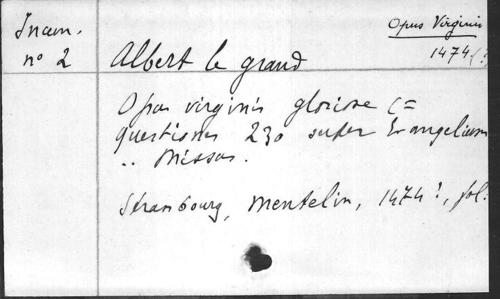 Incun.
nº 2
Opus Virginis
1474(?)
Albert le grand
Opus virginis gloriose (=
questiones 230 super Evangelium
.. Missus.
Strasbourg, Mentelin, 1474?, fol.